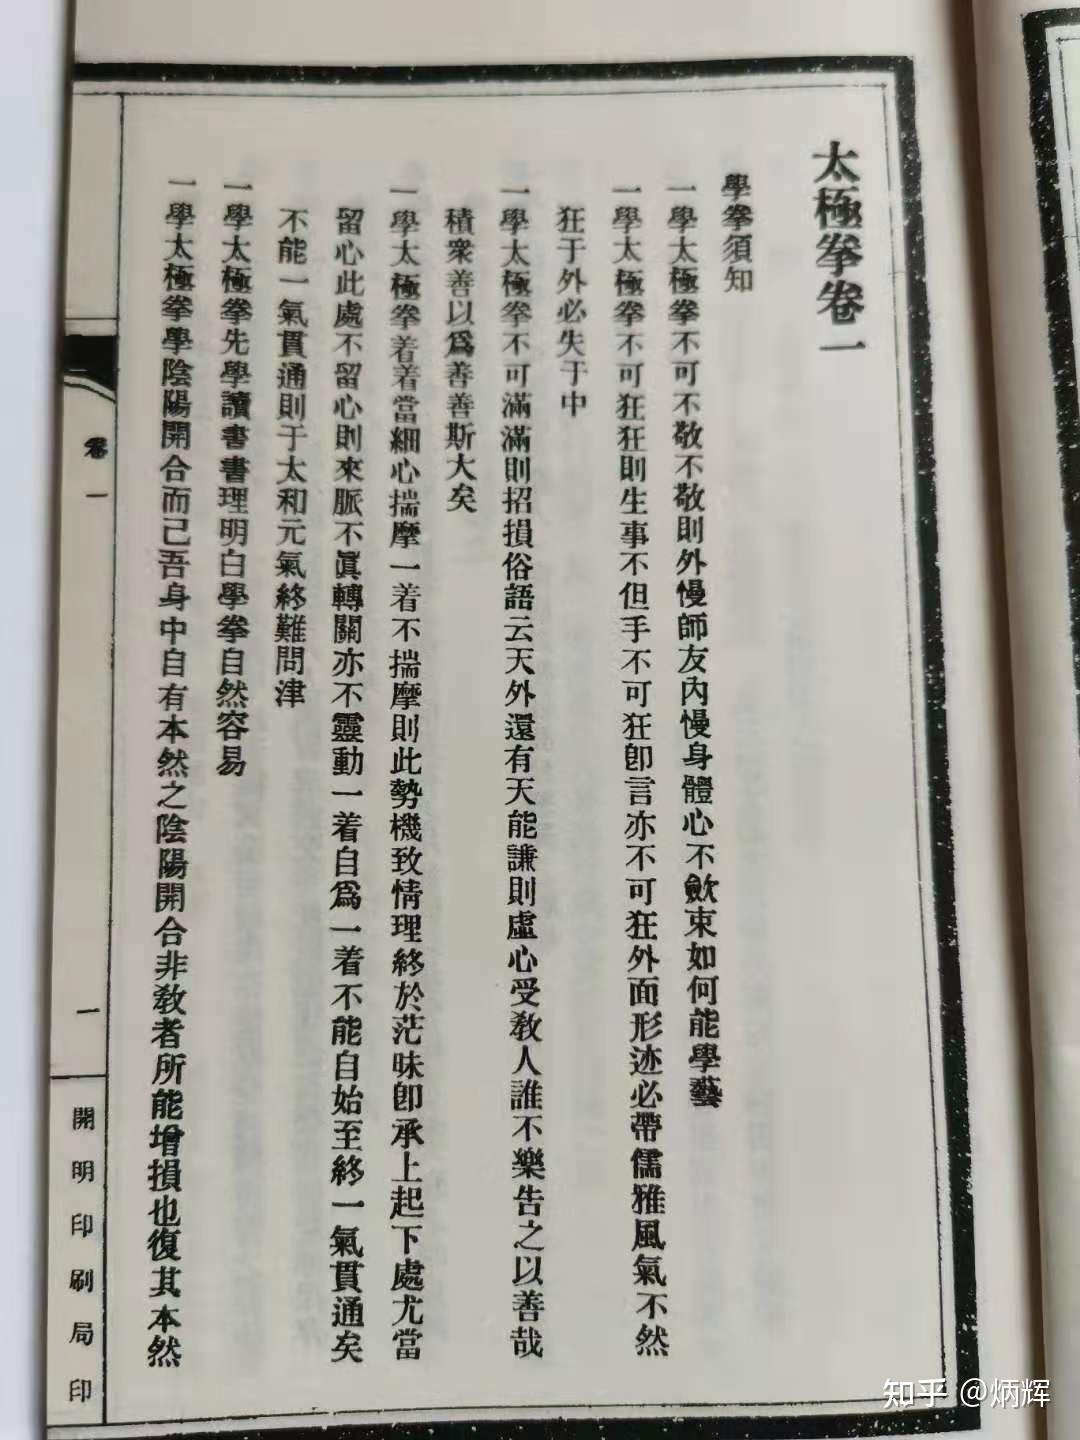 太極拳卷一
學拳須知
一學太極拳不可不敬不敬則外慢師友內慢身體心不歛束如何能學藝
一學太極拳不可狂狂則生事不但手不可狂卽言亦不可狂外面形迹必帶儒雅風氣不然
狂于外必失于中
一學太極拳不可滿滿則招損俗語云天外還有天能謙則虛心受教人誰不樂告之以善哉
積衆善以爲善善斯大矣
一學太極拳着着當細心揣摩一着不揣摩則此勢機致情理終於茫昧卽承上起下處尤當
留心此處不留心則來脈不眞轉關亦不靈動一着自爲一着不能自始至終一氣貫通矣
不能一氣貫通則于太和元氣終難問津
一學太極拳先學讀書書理明白學拳自然容易
一學太極拳學陰陽開合而已吾身中自有本然之陰陽開合非教者所能增損也復其本然
卷一
一
開明印刷局印
知乎 @炳辉